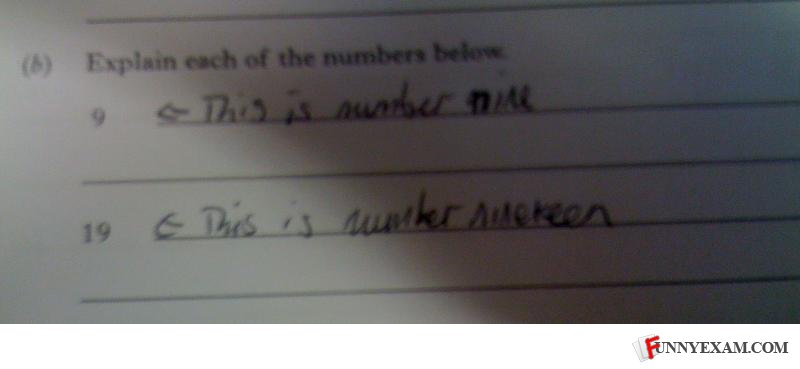 (b) Explain each of the numbers below.
9 ← This is number nine
19 ← This is number nineteen
FUNNYEXAM.COM